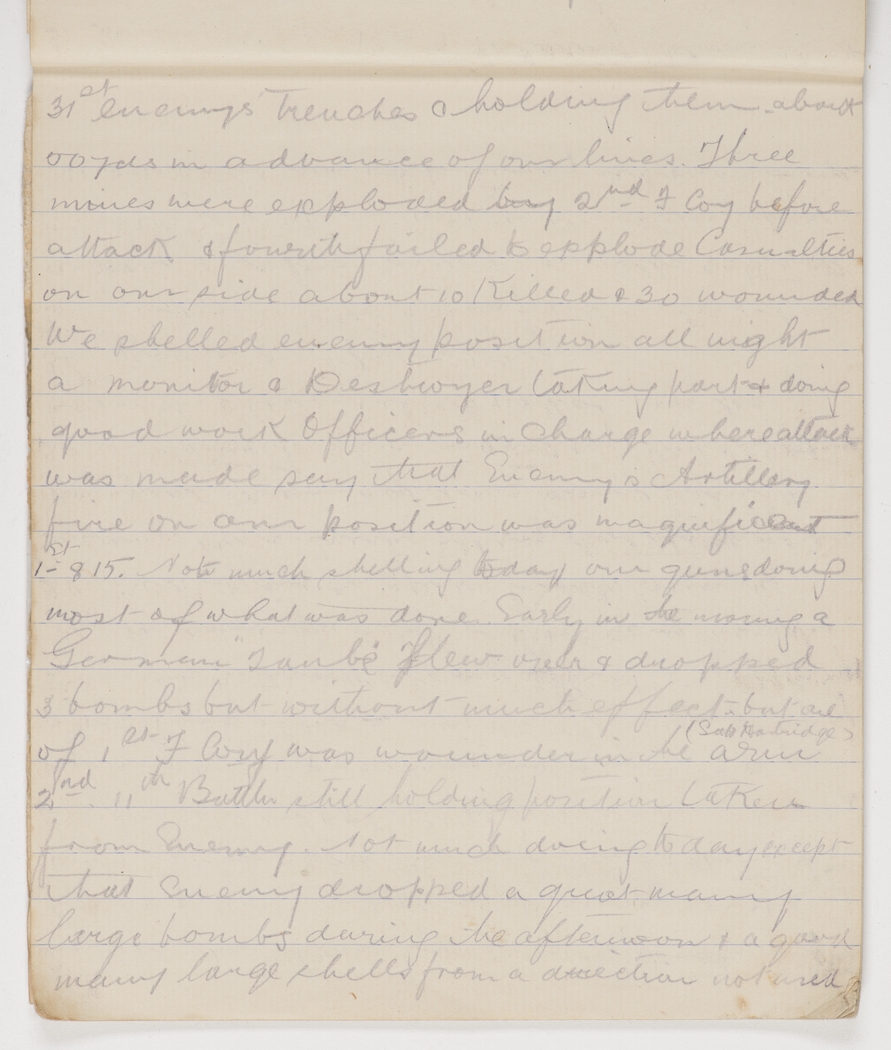 31st enemys trenches & holding them about
00 yds in advance of our lines. Three
mines were exploded by 2nd F Coy before
attack & fourth failed to explode Casualties
on our side about 10 Killed & 30 wounded
We shelled enemy position all night
a monitor & Destroyer taking part & doing
good work Officers in Charge where attack
was made say that Enemys Artillery
fire on our position was magnificent
1st 8 15. Not much shelling today our guns doing
most of what was done. Early in the morning a
German "Taube" flew over & dropped
3 bombs but without much effect but one
of 1st F Coy was wounded in the arm
(Sap Partridge)
2nd. 11th Battn still holding position taken
from Enemy. Not much doing to day except
that Enemy dropped a great many
large bombs during the afternoon & a good
many large shells from a direction not used